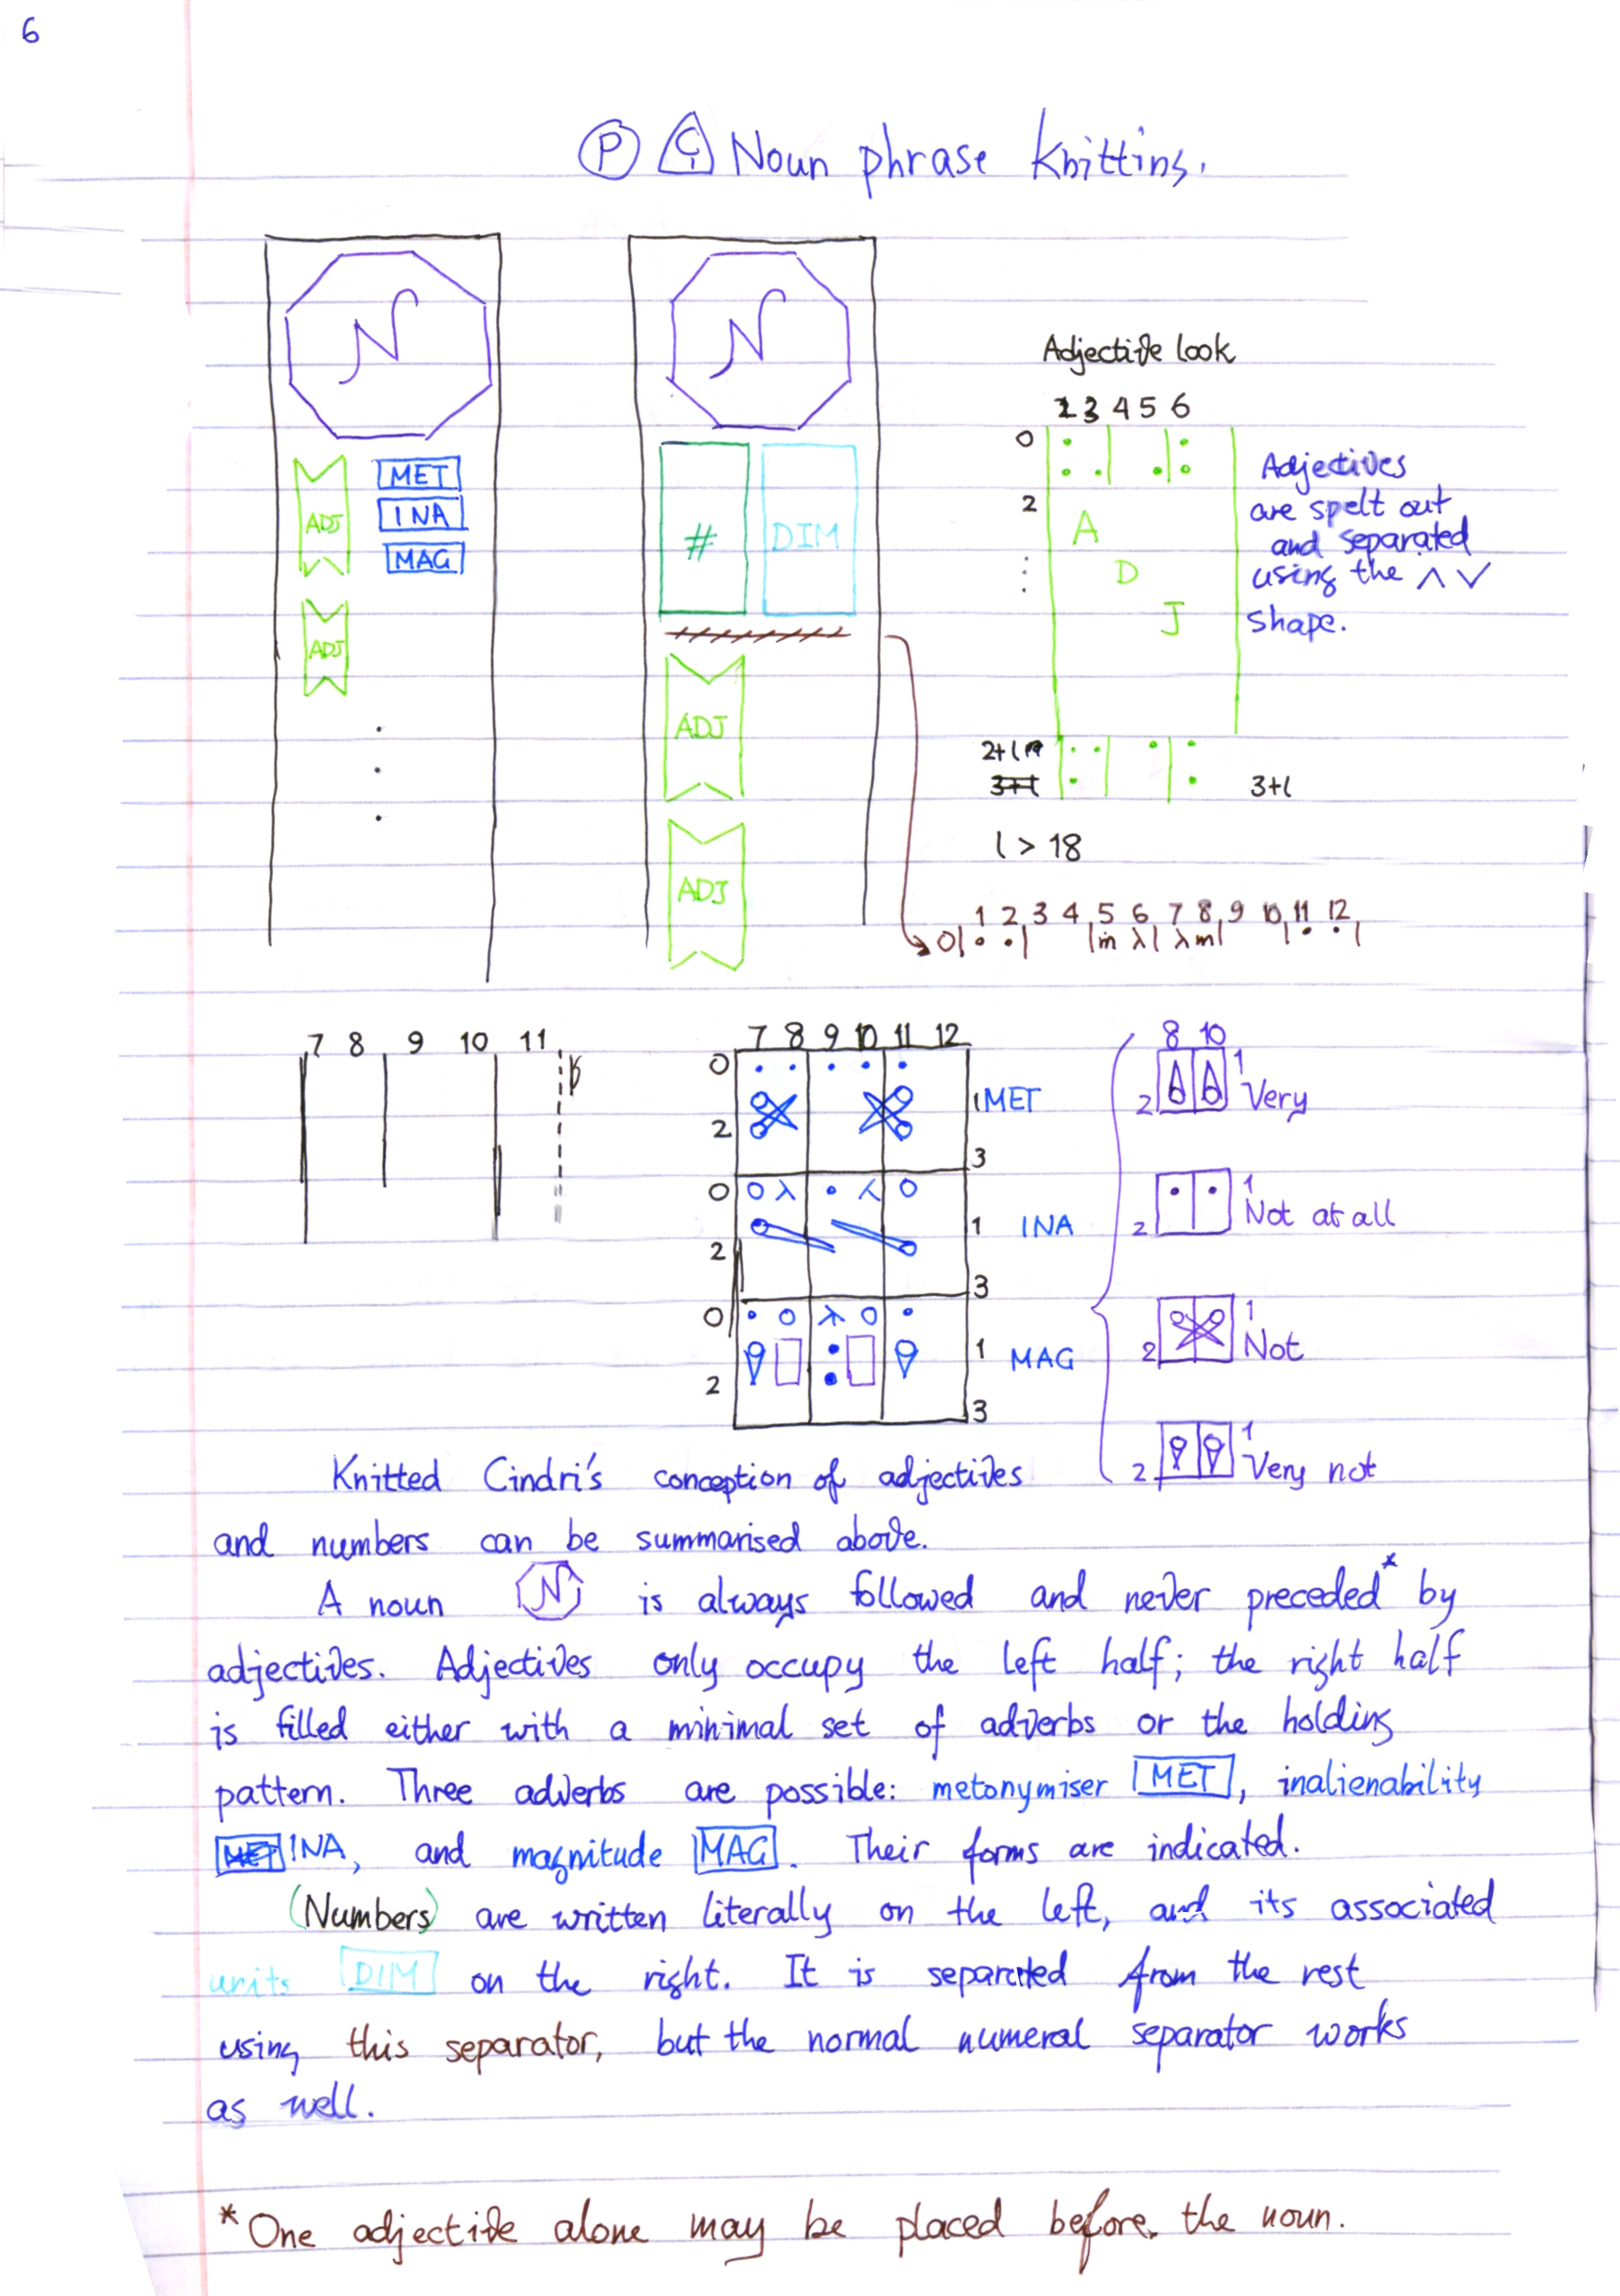 6
P Ç Noun phrase Knitting.
N
N
ADJ
MET
INA
MAG
ADJ
# DIM
ADJ
ADJ
Adjective look
2 3 4 5 6
0
2
A
D
J
2+l
3+l
3+l
l > 18
Adjectives
are spelt out
and separated
using the ∧ ∨
shape.
1 2 3 4 5 6 7 8 9 10 11 12
0|• •| |ṁ λ| λ m| |• •|
7 8 9 10 11
7 8 9 10 11 12
0
1 MET
2
3
0 O λ • O
1 INA
2
3
0 • O O •
1 MAG
2
3
8 10
1
2 Very
1
2 Not at all
1
2 Not
1
2 Very not
Knitted Cindri's conception of adjectives
and numbers can be summarised above.
A noun N is always followed and never preceded* by
adjectives. Adjectives only occupy the left half; the right half
is filled either with a minimal set of adverbs or the holding
pattern. Three adverbs are possible: metonymiser MET, inalienability
MET INA, and magnitude MAG. Their forms are indicated.
(Numbers) are written literally on the left, and its associated
units DIM on the right. It is separated from the rest
using this separator, but the normal numeral separator works
as well.
*One adjective alone may be placed before the noun.